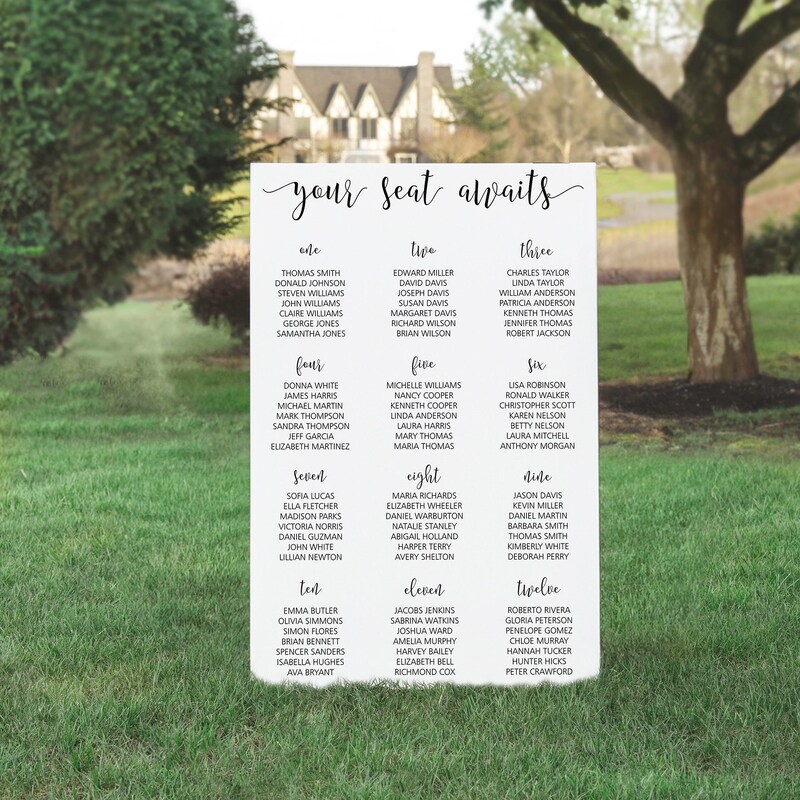 your seat awaits
one
THOMAS SMITH
DONALD JOHNSON
STEVEN WILLIAMS
JOHN WILLIAMS
CLAIRE WILLIAMS
GEORGE JONES
SAMANTHA JONES
two
EDWARD MILLER
DAVID DAVIS
JOSEPH DAVIS
SUSAN DAVIS
MARGARET DAVIS
RICHARD WILSON
BRIAN WILSON
three
CHARLES TAYLOR
LINDA TAYLOR
WILLIAM ANDERSON
PATRICIA ANDERSON
KENNETH THOMAS
JENNIFER THOMAS
ROBERT JACKSON
four
DONNA WHITE
JAMES HARRIS
MICHAEL MARTIN
MARK THOMPSON
SANDRA THOMPSON
JEFF GARCIA
ELIZABETH MARTINEZ
five
MICHELLE WILLIAMS
NANCY COOPER
KENNETH COOPER
LINDA ANDERSON
LAURA HARRIS
MARY THOMAS
MARIA THOMAS
six
LISA ROBINSON
RONALD WALKER
CHRISTOPHER SCOTT
KAREN NELSON
BETTY NELSON
LAURA MITCHELL
ANTHONY MORGAN
seven
SOFIA LUCAS
ELLA FLETCHER
MADISON PARKS
VICTORIA NORRIS
DANIEL GUZMAN
JOHN WHITE
LILLIAN NEWTON
eight
MARIA RICHARDS
ELIZABETH WHEELER
DANIEL WARBURTON
NATALIE STANLEY
ABIGAIL HOLLAND
HARPER TERRY
AVERY SHELTON
nine
JASON DAVIS
KEVIN MILLER
DANIEL MARTIN
BARBARA SMITH
THOMAS SMITH
KIMBERLY WHITE
DEBORAH PERRY
ten
EMMA BUTLER
OLIVIA SIMMONS
SIMON FLORES
BRIAN BENNETT
SPENCER SANDERS
ISABELLA HUGHES
AVA BRYANT
eleven
JACOBS JENKINS
SABRINA WATKINS
JOSHUA WARD
AMELIA MURPHY
HARVEY BAILEY
ELIZABETH BELL
RICHMOND COX
twelve
ROBERTO RIVERA
GLORIA PETERSON
PENELOPE GOMEZ
CHLOE MURRAY
HANNAH TUCKER
HUNTER HICKS
PETER CRAWFORD